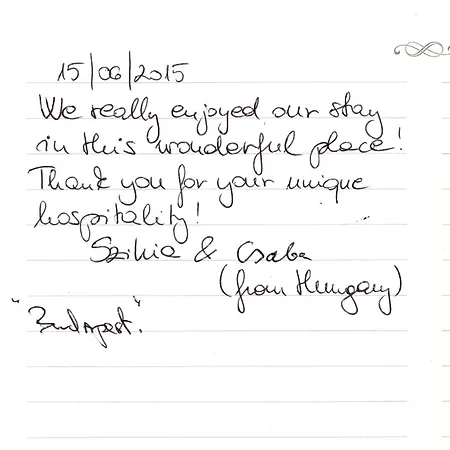 15/06/2015
We really enjoyed our stay
in this wonderful place!
Thank you for your unique
hospitality!
Szilvia & Csaba
(from Hungary)
"Budapest."